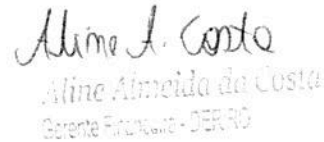 Aline A. Costa
Aline Almeida da Costa
Gerente Financeiro - DER/RO